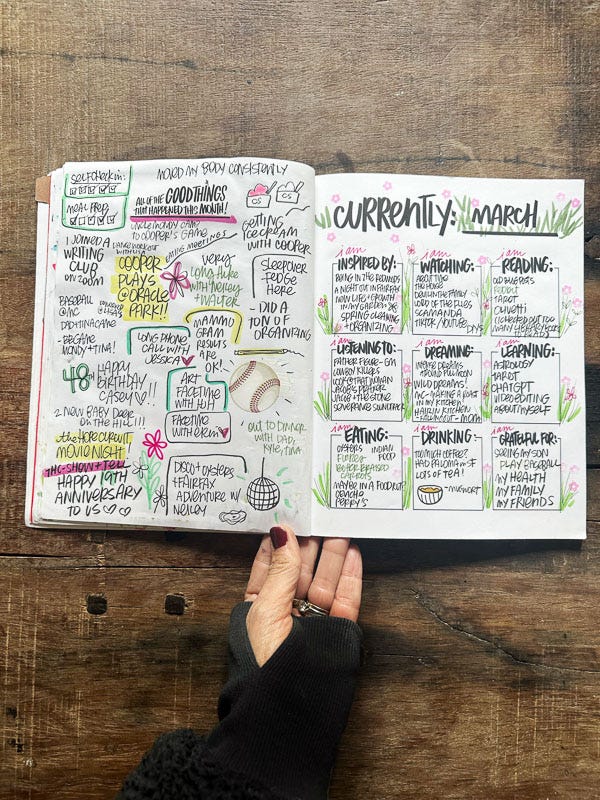 SELF CHECK IN:
MEAL PREP
MOVED MY BODY CONSISTENTLY
ALL OF THE GOOD THINGS
THAT HAPPENED THIS MONTH!
OS
OS
UNCLE MOUDY CAME
TO COOPER'S GAME
I JOINED A
WRITING
CLUB
ON ZOOM!
COOPER
PLAYS
@ORACLE
PARK!!
MEETINGS
VERY
LONG HIKE
WITH NEILEY
+ WALTER
GETTING
ICE CREAM
WITH COOPER
SLEEPOVER
FEDGE
HERE
- DID A
TON OF
ORGANIZING
BASEBALL
@NC
DAD+TINA CAME
- BECAME
MONDY+TINA!
LONG PHONE
CALL WITH
JESSICA
MAMMO
GRAM
RESULTS
ARE
OK!
48th HAPPY
BIRTHDAY
CASEY!!
ART
FACETIME
WITH
FACETIME
WITH ERIN
OUT TO DINNER
WITH DAD,
KYLE, TINA
2 NEW BABY DEER
ON THE HILL!!!
MOVIE NIGHT
THC-SHOW+TELL
HAPPY 19TH
ANNIVERSARY
TO US
DISCO+OYSTERS
+FAIRFAX
ADVENTURE W/
NEILEY
CURRENTLY: MARCH
i am
INSPIRED BY:
BEING IN THE REDWOODS
A NIGHT OUT IN FAIRFAX
NEW LIFE + GROWTH
IN MY GARDEN
SPRING CLEANING
+ ORGANIZING
i am
WATCHING:
ABOUT TIME
THE HOUSE
DEVIL IN THE FAMILY
LORD OF THE FLIES
SCAMANDA
TIKTOK/YOUTUBE
i am
READING:
OLD BLOGGERS
TAROT
OLIVETTI
I CHECKED OUT TOO
MANY LIBRARY BOOKS
i am
LISTENING TO:
FATHER FIGURE - GM
LONELY KILLERS
LOOK @ THAT WOMAN
JACOB'S PRAYER
JACOB + THE STONE
SEVERANCE SOUNDTRACK
i am
DREAMING:
WILD DREAMS!
NC-MAKING A POST
IN MY KITCHEN
i am
LEARNING:
ASTROLOGY
TAROT
CHATGPT
VIDEO EDITING
ABOUT MYSELF
i am
EATING:
OYSTERS
INDIAN
FOOD
BUTTER BRAISED
CARROTS
MAYBE IN A FOOD RUT?
CEVICHE
PERRY'S
i am
DRINKING:
TOO MUCH COFFEE?
HAD PALOMA IN SF
LOTS OF TEA!
- MUGWORT
i am
GRATEFUL FOR:
SEEING MY SON
PLAY BASEBALL
MY HEALTH
MY FAMILY
MY FRIENDS